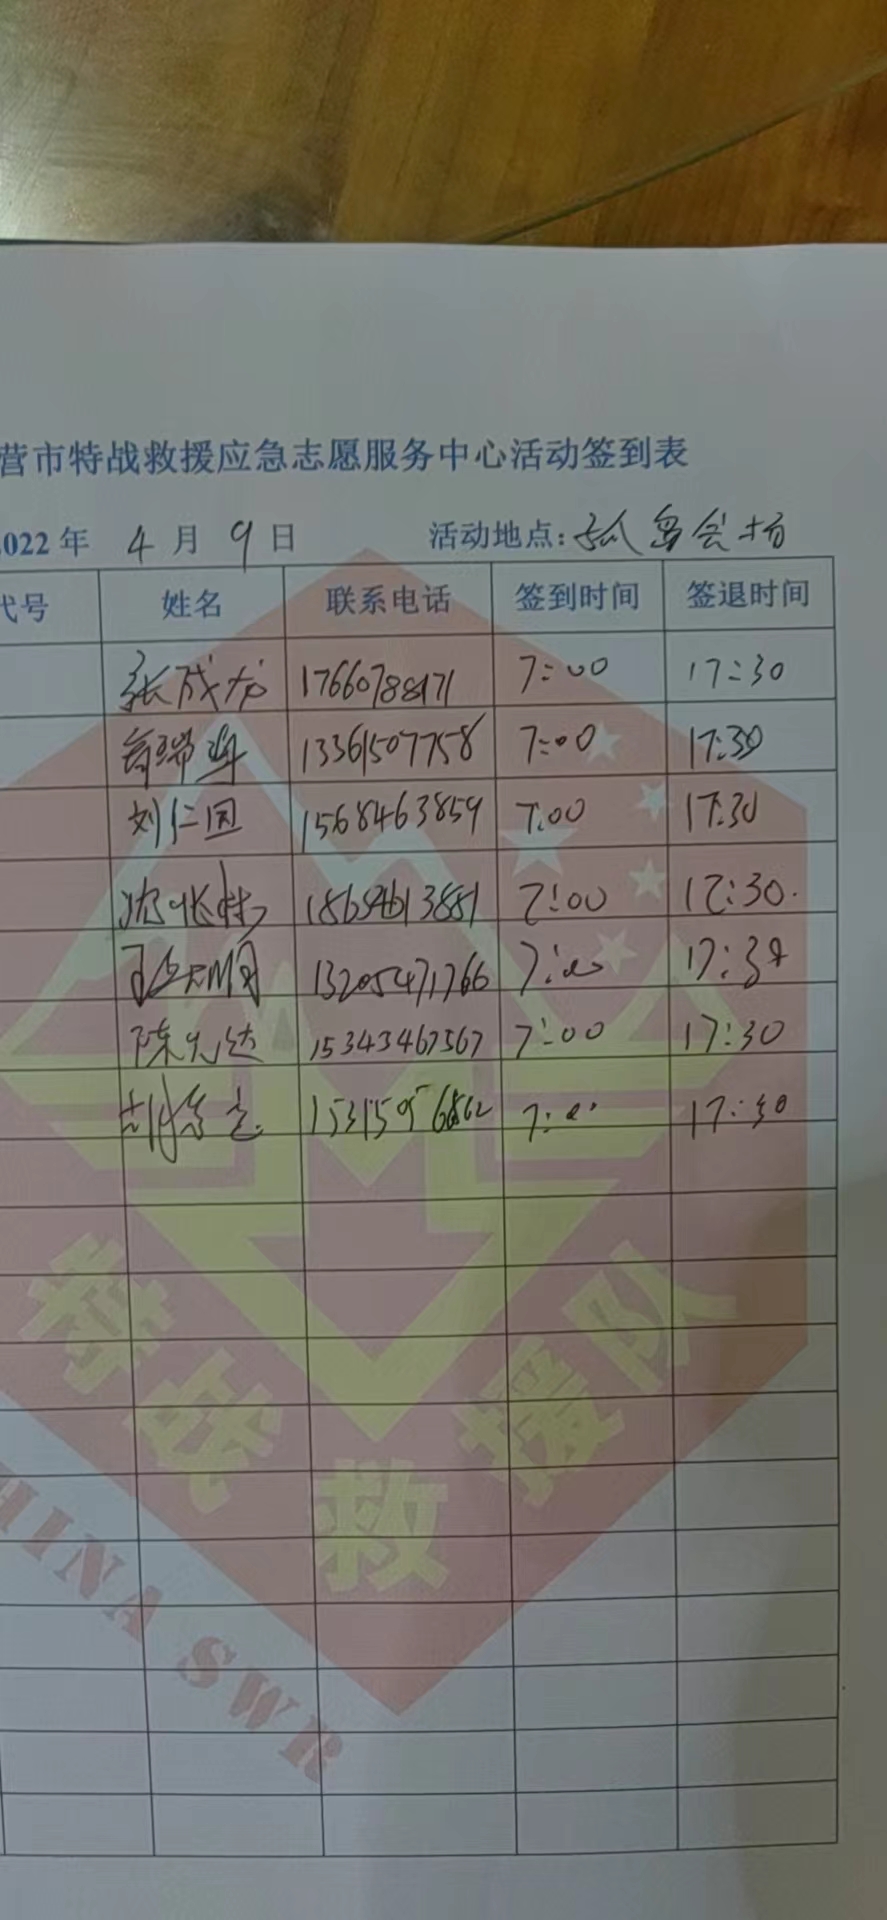 营市特战救援应急志愿服务中心活动签到表
2022 年 4 月 9 日 活动地点:孤岛会场
代号 姓名 联系电话 签到时间 签退时间
张成龙 17660788171 7:00 17:30
13361507758 7:00 17:30
刘仁国 15684638459 7:00 17:30
7:00 17:30.
13205471766 7:00 17:30
陈允达 15343467567 7:00 17:30
7:00 17:30
特战救援队
HINA SWR